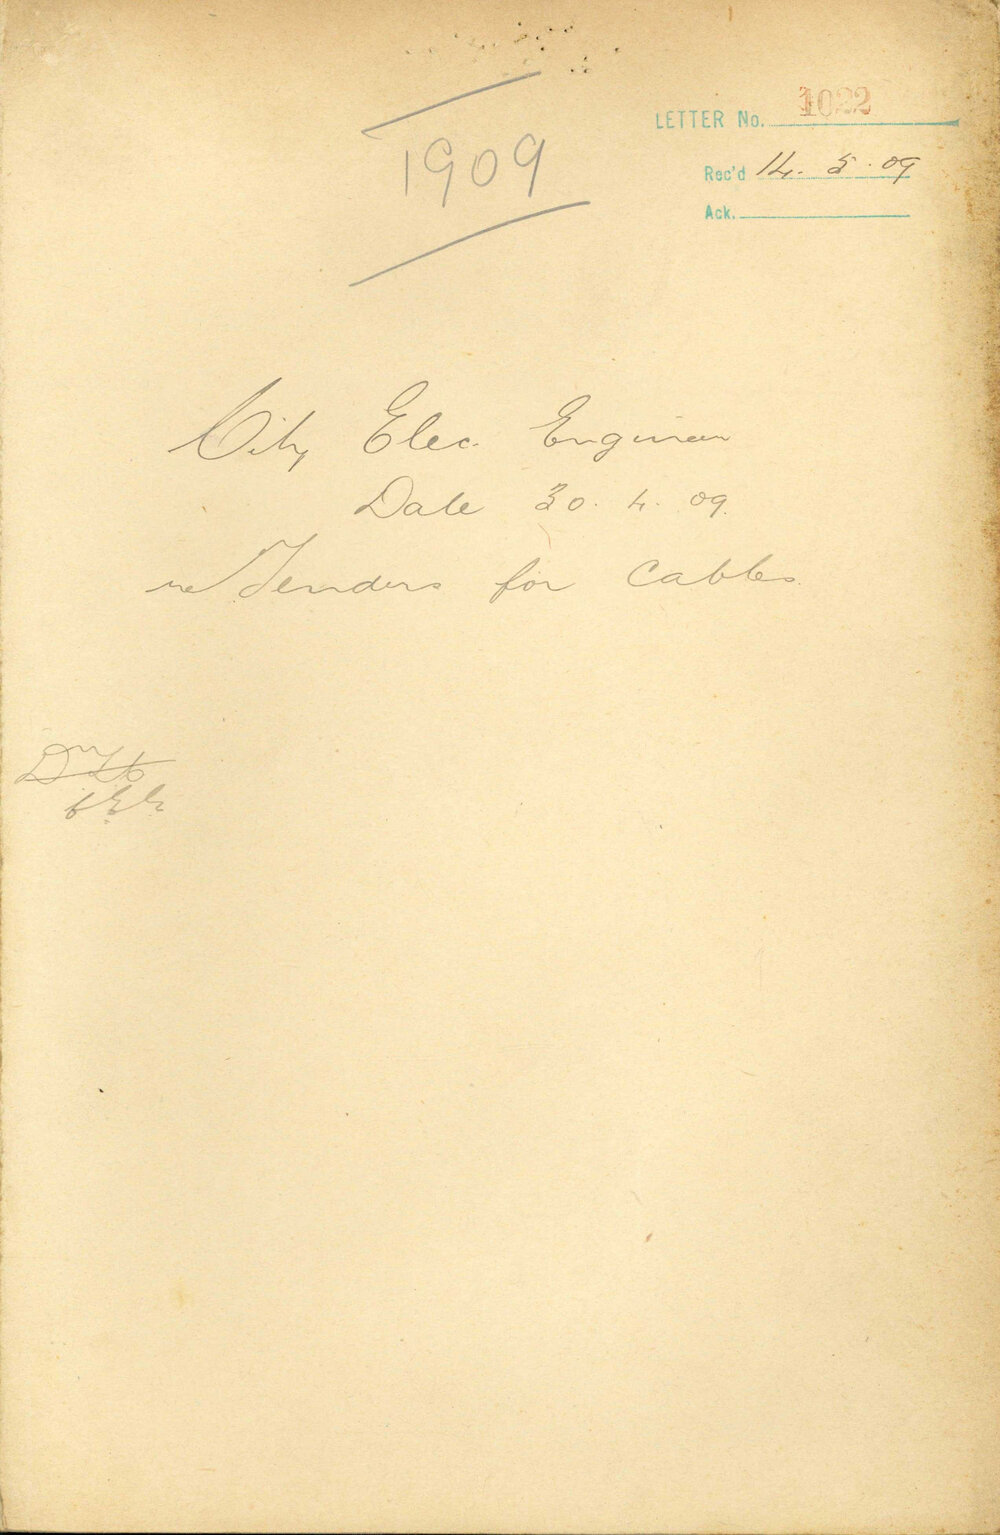 1909
LETTER No. 1022
Rec'd 14. 5. 09
Ack.
City Elec. Engineer
Date 30. 4. 09.
re Tenders for Cables.